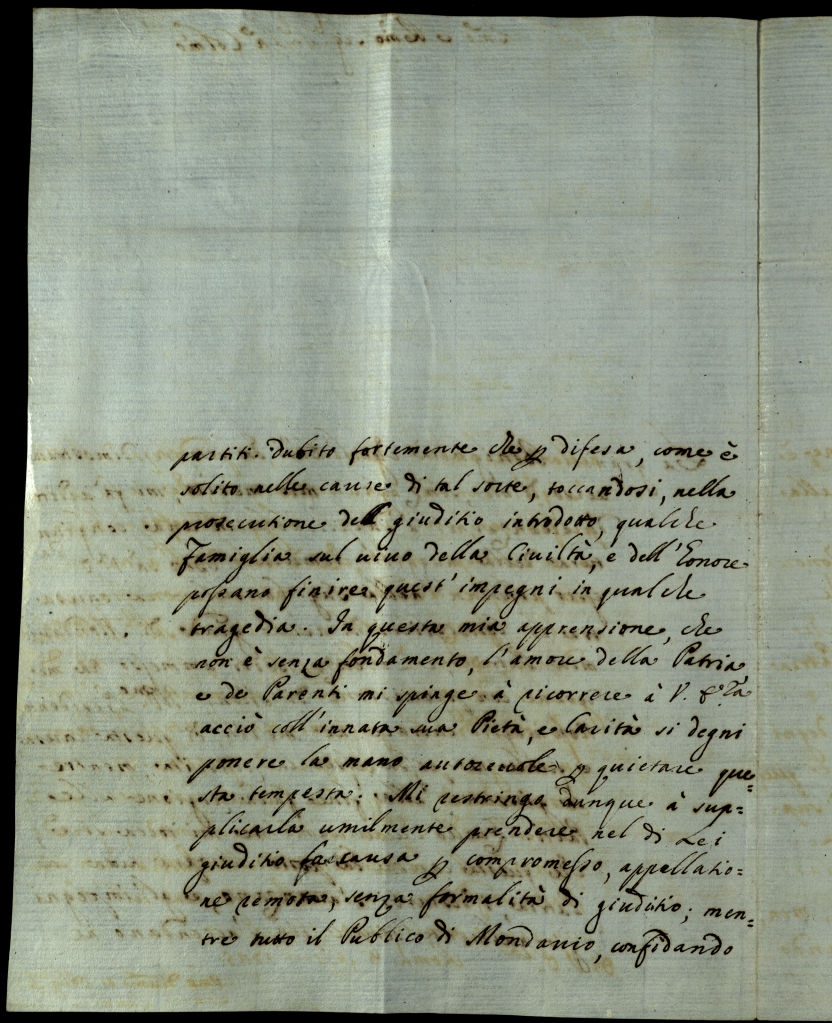 partiti. dubito fortemente che ꝑ difesa, come è
solito nelle cause di tal sorte, toccandosi, nella
prosecutione del giuditio introdotto, qualche
famiglia sul uiuo della Ciuiltà, e dell'Honore
possano finire quest'impegni in qualche
tragedia. In questa mia apprensione, che
non è senza fondamento, l'amore della Patria
e de Parenti mi spinge à ricorrere à V.
acciò coll'innata sua Pietà, e Carità si degni
ponere la mano autoreuole ꝑ quietare que=
sta tempesta. Mi restringo dunque à sup=
plicarla umilmente prendere nel di Lei
giuditio la causa ꝑ compromesso, appellatio=
ne remota, senza formalità di giuditio; men=
tre tutto il Publico di Mondauio, confidando